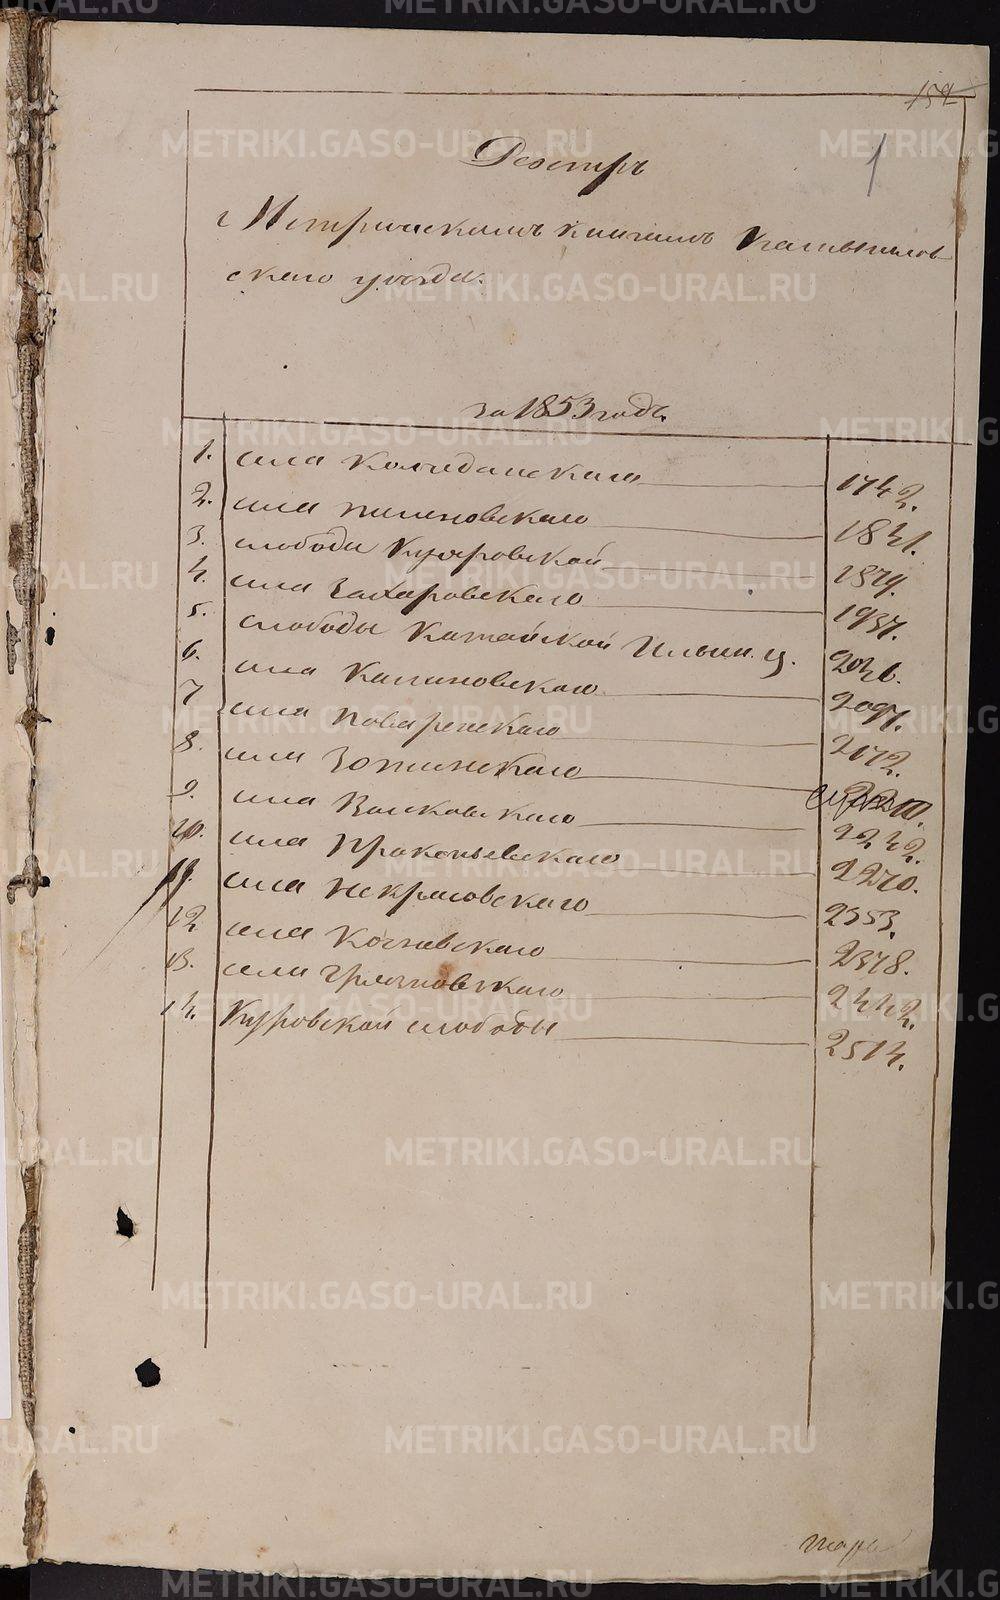 159
1
Реэстръ
Метрическимъ книгамъ Камышлов
скаго уѣзда.
за 1853 годъ.
1. села Колчеданскаго 1742.
2. села 1831.
3. слободы Куяровской 1879.
4. села Захаровскаго 1937.
5. слободы Катайской Ильин. ц. 2036.
6. села Калиновскаго 2097.
7 села Поваренскаго 2172.
8. села Зотинскаго
9. села Волковскаго 2232.
10. села Прокопьевскаго 2270.
11. села Некрасовскаго 2353.
12 села Кочневскаго 2378.
13. села Грязновскаго 2442.
14. Куровской слободы 2514.
METRIKI.GASO-URAL.RU